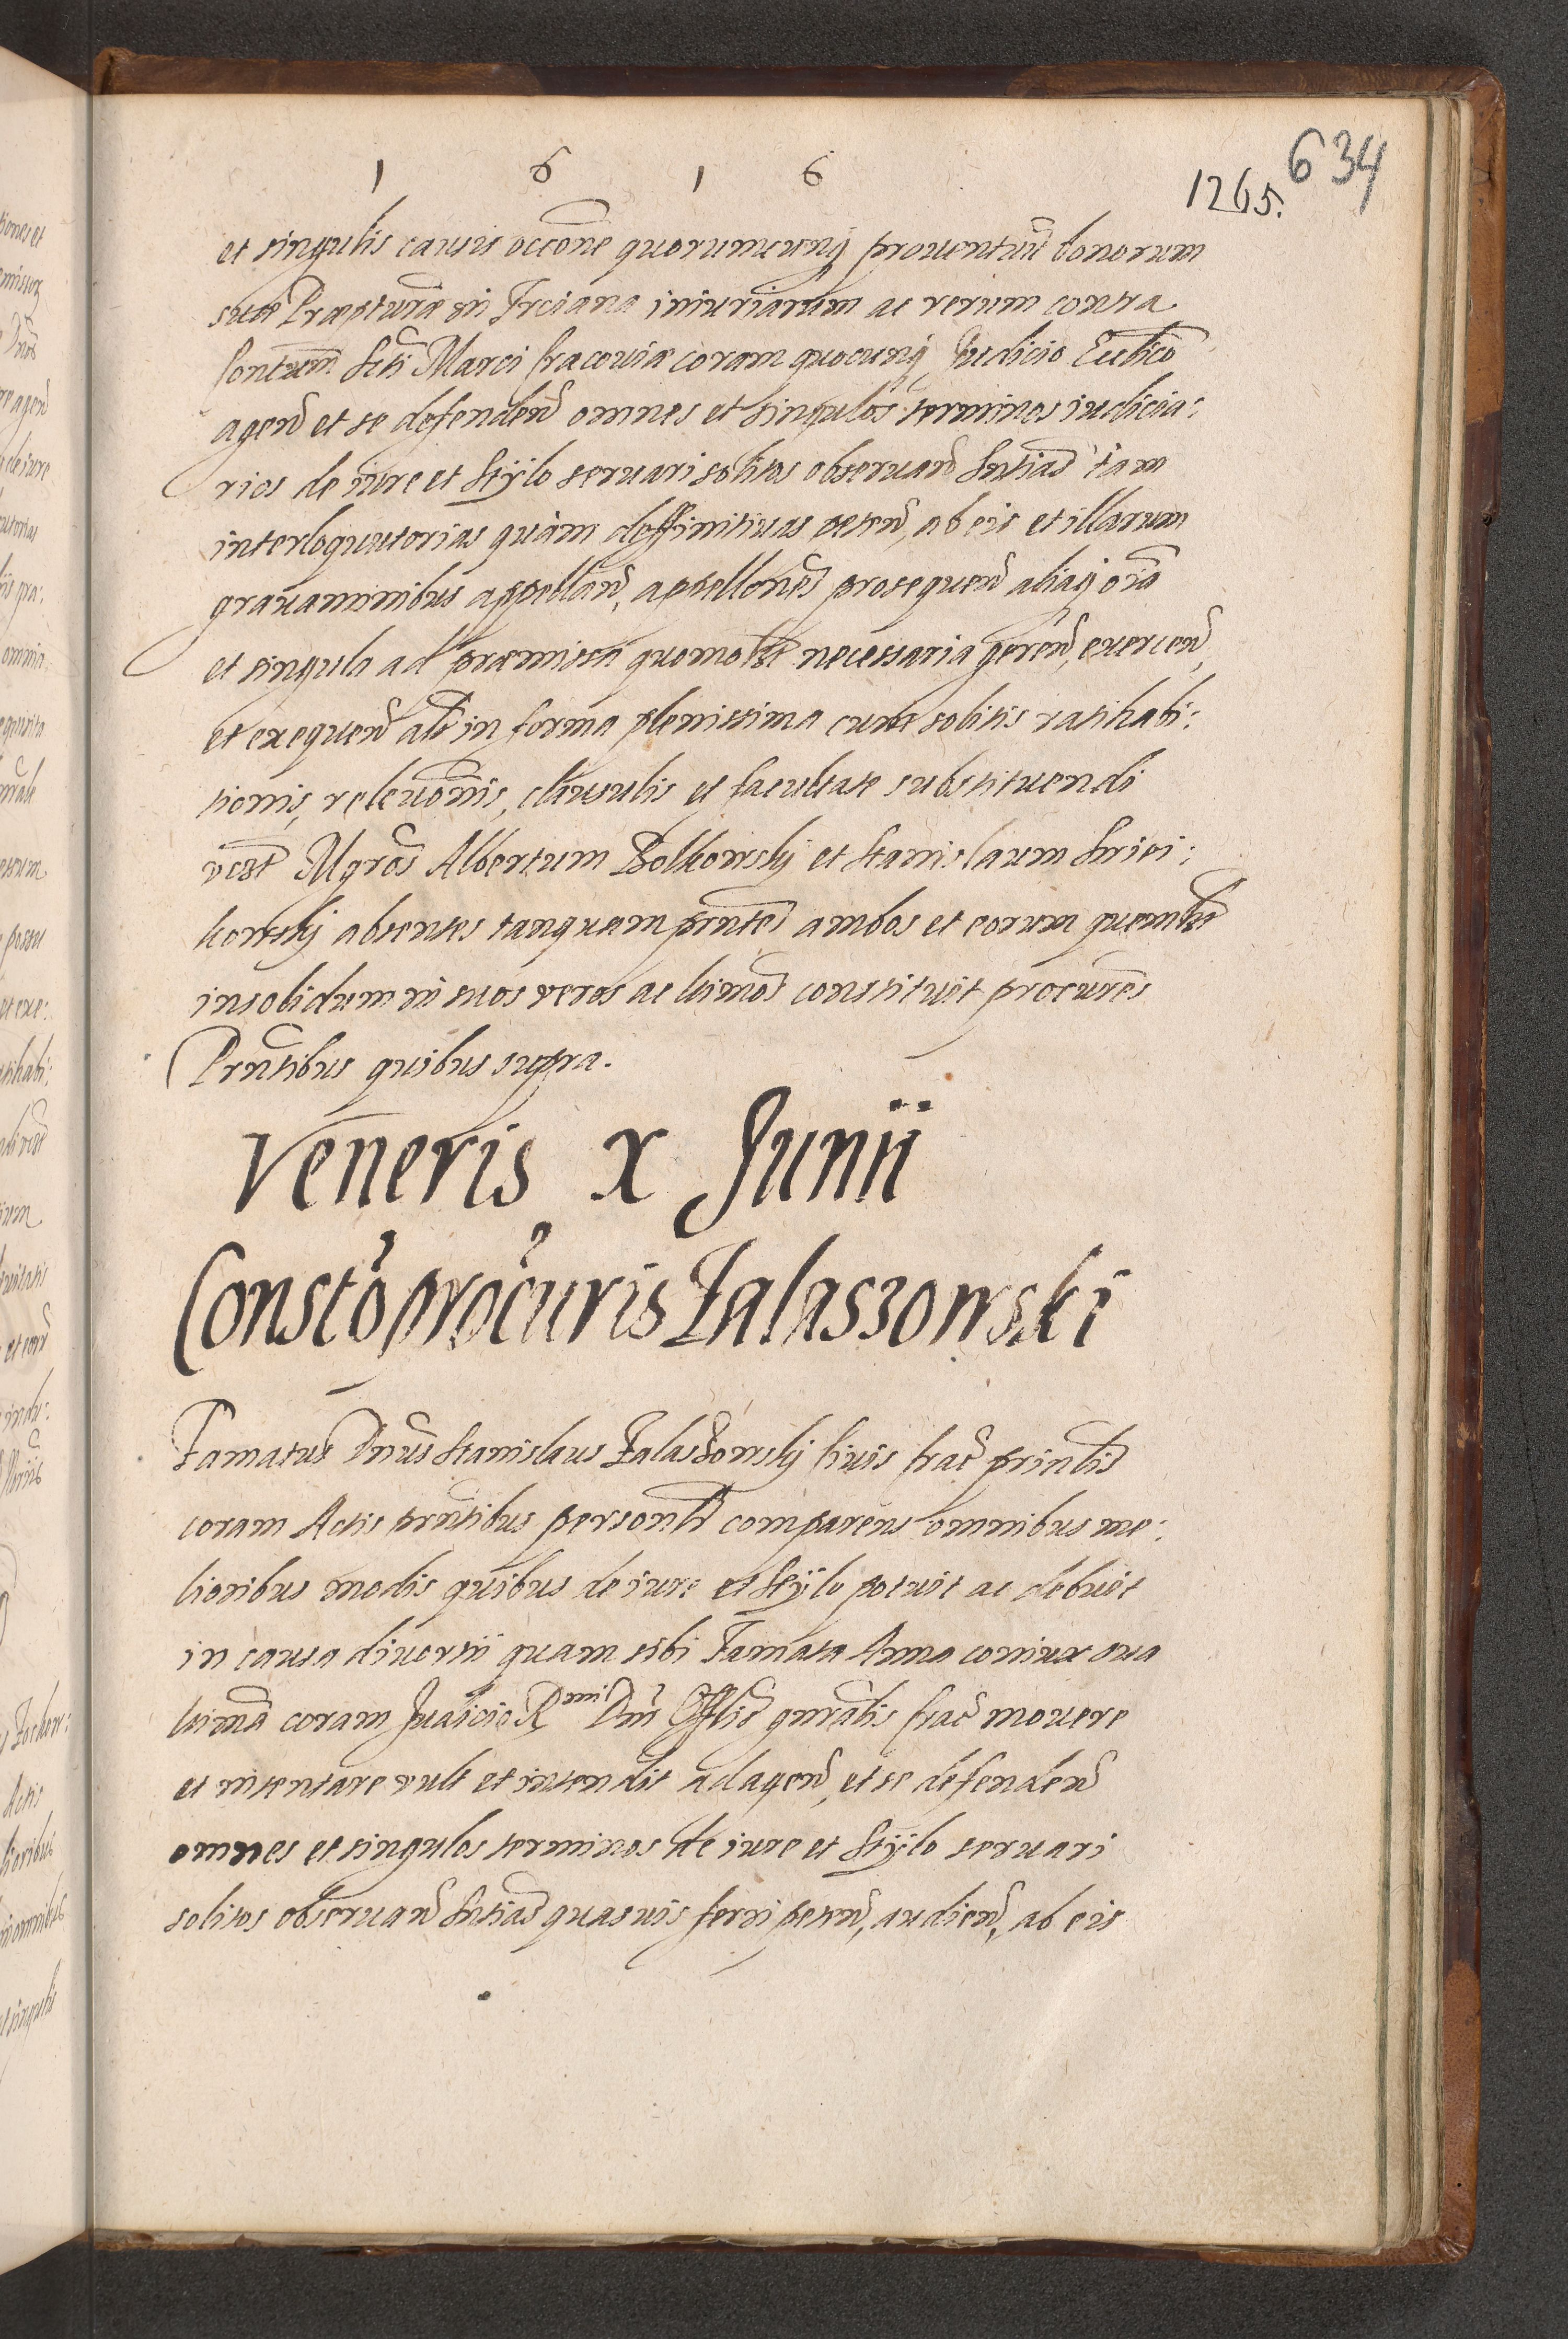 1 6 1 6
1265. 634
et singulis causis occone quorumcunq prouentuu bonorum
suae Praepturae in Trciana iniuriarum ac rerum contra
Contuem Scti Marci Cracouiae coram quocunq Judicio Ecclico
agend et se defendend omnes et singulos terminos iudicia:
rios de iure et Stÿlo seruari solitos obseruand Sntias tam
interloqutorias quàm deffinitiuas peten, ab eis et illarum
grauaminibus appelland, appellones prosequend aliaq oia
et singula ad praemissa quomolbt necessaria gerend, exercend,
et exequend als in forma plenissima cum solitis ratihabi:
tionis, releuonis, clausulis et facultate substituendi
vest Mgros Albertum Bolkowskj et Stanislaum Smiei:
kowskj absentes tanquam pntes ambos et eorum quemlbt
insolidum in suos veros ac ltimos constituit procures
Prntibus quibus supra.
Veneris x Junii
Consto procuris Zalaszowski
Famatus Dnus Stanislaus Zalaszowskj Ciuis Crac prinlis
coram Actis prntibus personlr comparens omnibus me:
lioribus modis quibus de iure et Stÿlo potuit ac debuit
in causa diuortii quam sibi Famata Anna coniux sua
ltima coram Judicio Rmi Dni Offlis gnralis Crac mouere
et intentare vult et intendit ad agend, et se defendend
omnes et singulos terminos de iure et Stÿlo seruari
solitos obseruand Sntias quasuis ferri petend, audiend, ab eis